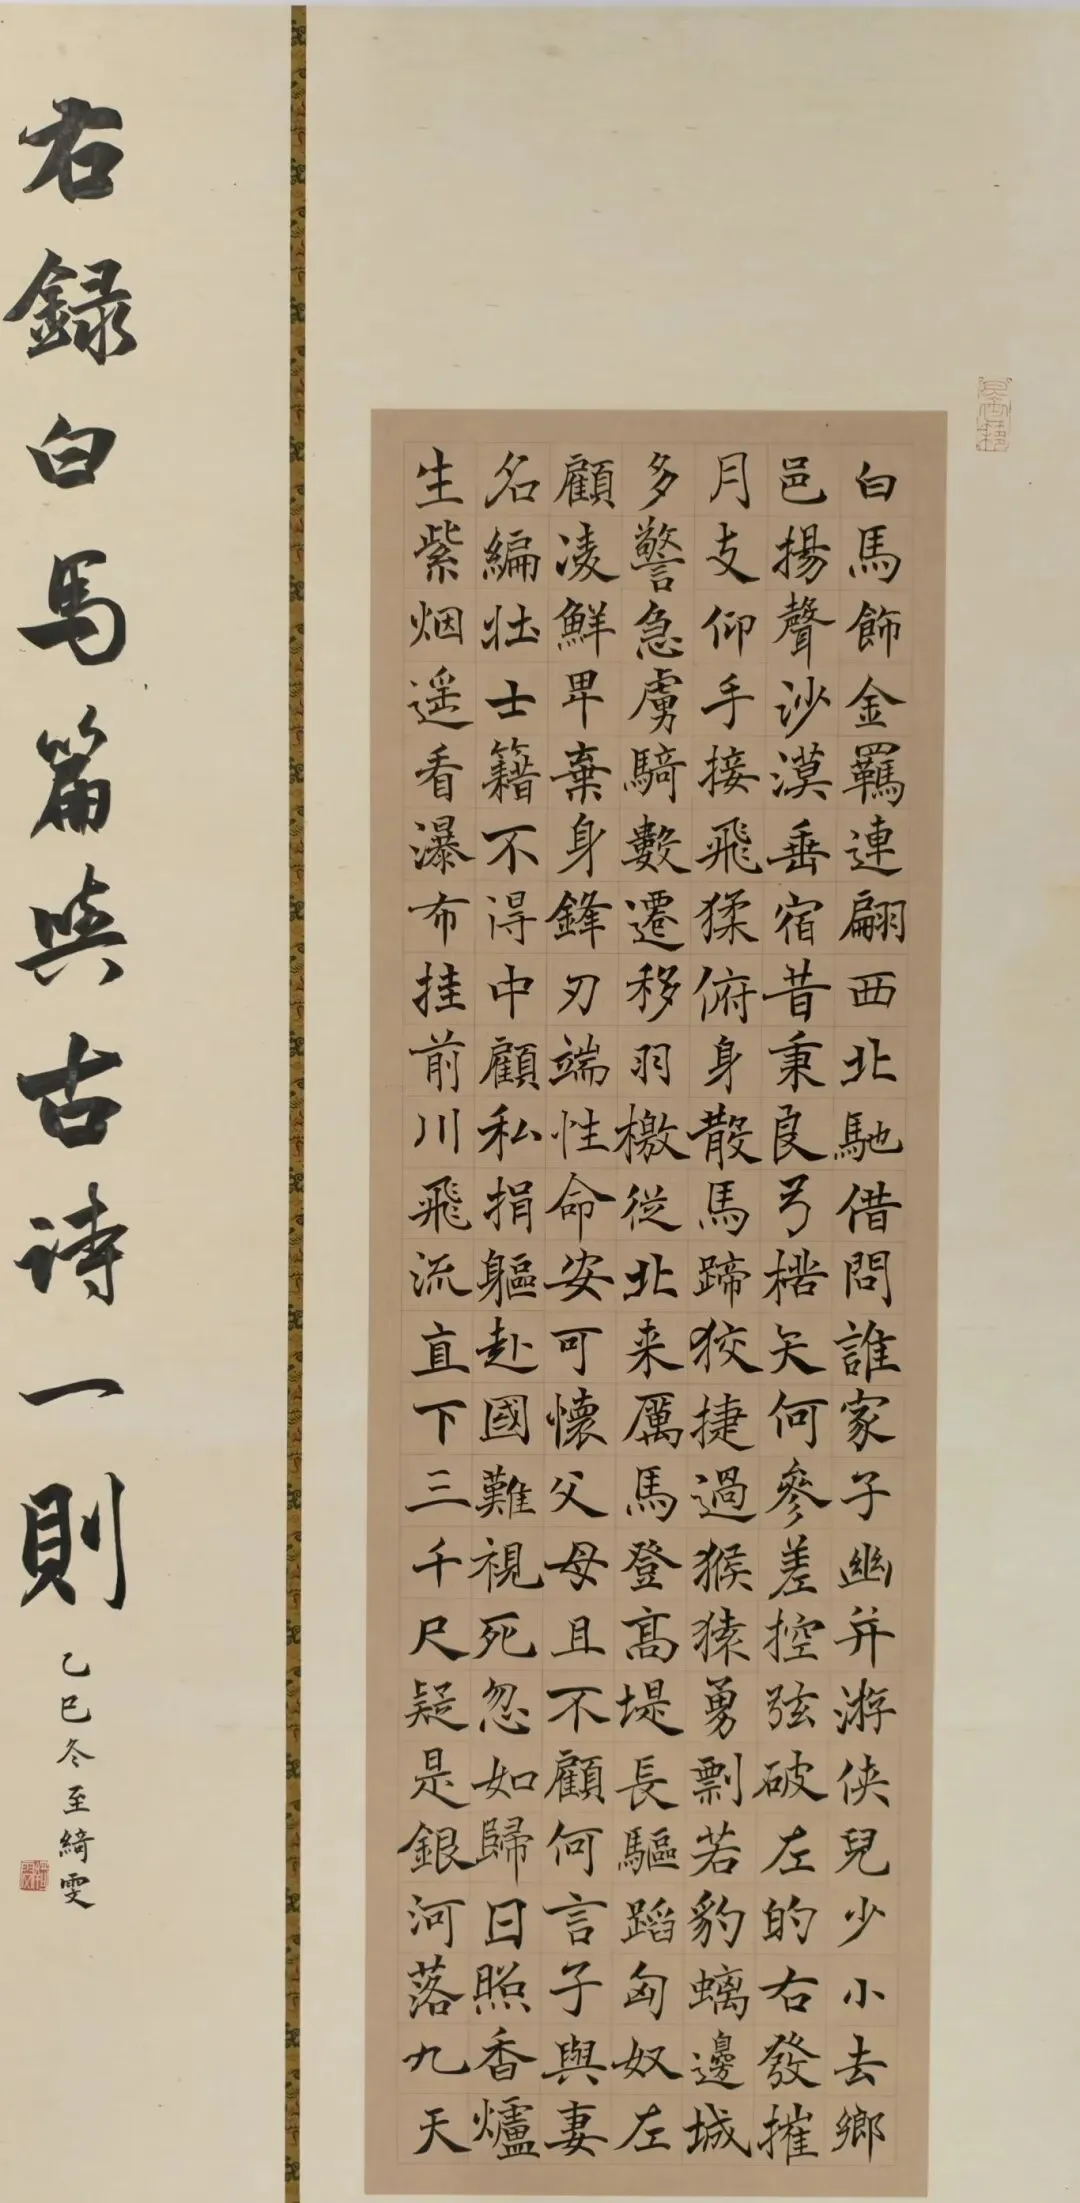 白馬飾金羈連翩西北馳借問誰家子幽并游俠兒少小去鄉
邑揚聲沙漠垂宿昔秉良弓楛矢何參差控弦破左的右發摧
月支仰手接飛猱俯身散馬蹄狡捷過猴猿勇剽若豹螭邊城
多警急虜騎數遷移羽檄從北来厲馬登高堤長驅蹈匈奴左
顧凌鮮卑棄身鋒刃端性命安可懷父母且不顧何言子與妻
名編壯士籍不得中顧私捐軀赴國難視死忽如歸日照香爐
生紫烟遥看瀑布挂前川飛流直下三千尺疑是銀河落九天
右録白馬篇與古詩一則
乙巳冬至綺雯